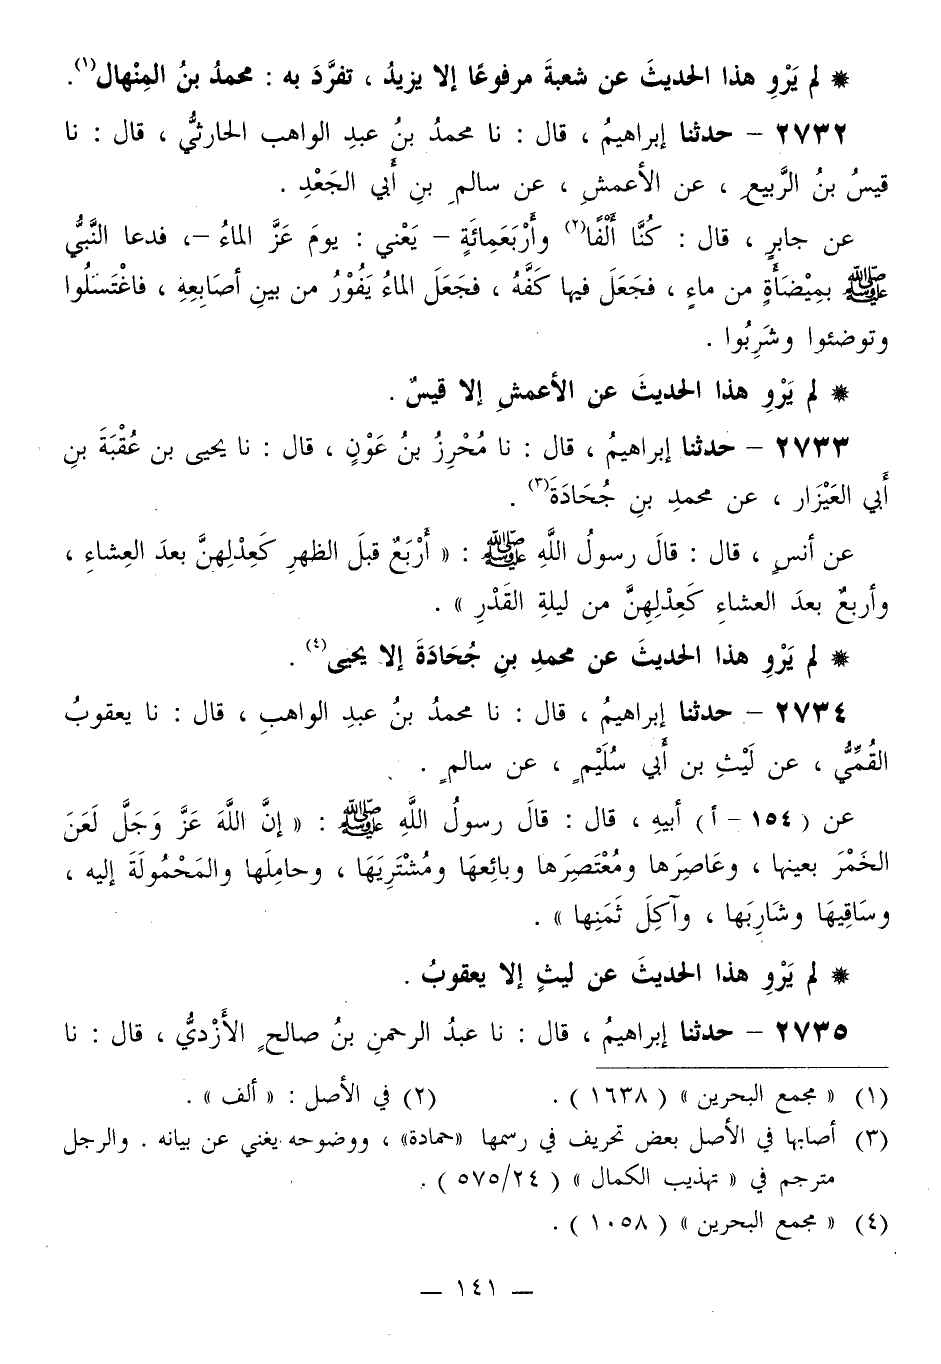 * لم يَرْوِ هذا الحديثَ عن شعبةَ مرفوعًا إلا يزيدُ ، تفرَّدَ به : محمدُ بنُ المِنْهال(١).
٢٧٣٢ – حدثنا إبراهيمُ ، قال : نا محمدُ بنُ عبدِ الواهب الحارثيُّ ، قال : نا
قيسُ بنُ الرَّبيعِ ، عن الأعمشِ ، عن سالمِ بنِ أَبي الجَعْدِ .
عن جابرٍ ، قال : كُنَّا أَلْفًا(٢) وأَرْبَعمِائَةٍ – يَعْني : يومَ عَزَّ الماءُ –، فدعا النَّبيُّ
ﷺ بمِيْضَأَةٍ من ماءٍ ، فجَعَلَ فيها كَفَّهُ ، فجَعَلَ الماءُ يَفُوْرُ من بينِ أصَابِعِهِ ، فاغْتَسَلُوا
وتوضئوا وشَرِبُوا .
* لم يَرْوِ هذا الحديثَ عن الأعمشِ إلا قيسٌ .
٢٧٣٣ – حدثنا إبراهيمُ ، قال : نا مُحْرِزُ بنُ عَوْنٍ ، قال : نا يحيى بن عُقْبَةَ بنِ
أَبي العَيْزَار ، عن محمدِ بنِ جُحَادَةَ(٣) .
عن أنسٍ ، قال : قالَ رسولُ اللَّهِ ﷺ : « أَرْبَعٌ قبلَ الظهرِ كَعِدْلِهنَّ بعدَ العِشاءِ ،
وأربعٌ بعدَ العشاءِ كَعِدْلِهِنَّ من ليلةِ القَدْرِ » .
* لم يَرْوِ هذا الحديثَ عن محمدِ بنِ جُحَادَةَ إلا يحيى(٤) .
٢٧٣٤ – حدثنا إبراهيمُ ، قال : نا محمدُ بنُ عبدِ الواهبِ ، قال : نا يعقوبُ
القُمِّيُّ ، عن لَيْثِ بن أَبي سُلَيْمٍ ، عن سالمٍ .
عن ( ١٥٤ – أ ) أبيهِ ، قال : قالَ رسولُ اللَّهِ ﷺ : « إنَّ اللَّهَ عَزَّ وَجَلَّ لَعَنَ
الخَمْرَ بعينها ، وعَاصِرَها ومُعْتَصِرَها وبائِعهَا ومُشْتَرِيَهَا ، وحامِلَها والمَحْمُولَةَ إليه ،
وسَاقِيهَا وشَارِبَها ، وآكِلَ ثَمَنِها » .
* لم يَرْوِ هذا الحديثَ عن ليثٍ إلا يعقوبُ .
٢٧٣٥ – حدثنا إبراهيمُ ، قال : نا عبدُ الرحمنِ بنُ صالحٍ الأَزْديُّ ، قال : نا
(١) « مجمع البحرين » ( ١٦٣٨ ) . (٢) في الأصل : « ألف » .
(٣) أصابها في الأصل بعض تحريف في رسمها «حمادة» ، ووضوحه يغني عن بيانه . والرجل
مترجم في « تهذيب الكمال » ( ٥٧٥/٢٤ ) .
(٤) « مجمع البحرين » ( ١٠٥٨ ) .
— ١٤١ —